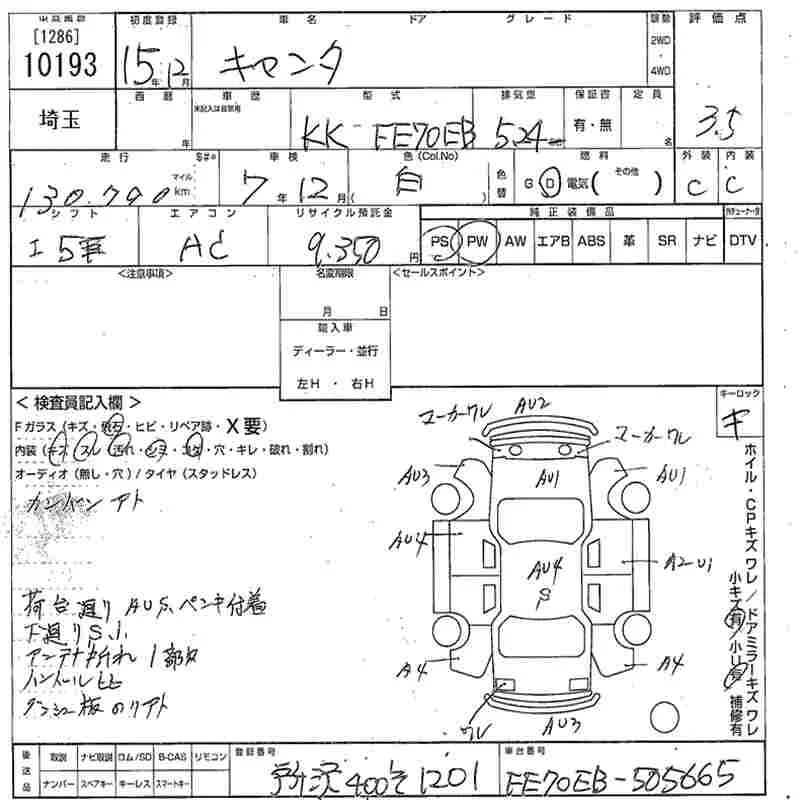 [1286]
10193
初度登録
車名
ドア
グレード
評価点
15年12月
キャンター
2WD
4WD
3.5
埼玉
西暦
年
車歴
未記入は自家用
型式
KK FE70EB
排気量
524
保証書
有・無
定員
名
走行
130,790
マイル
km
車検
7年12月
色(Col.No)
白
色替
燃料
G D 電気 その他
外装
C
内装
C
シフト
エアコン
AC
リサイクル預託金
9,350円
純正装備品
PS PW AW エアB ABS 革 SR ナビ DTV
<注意事項>
名変期限
月 日
<セールスポイント>
輸入車
ディーラー・並行
左H ・ 右H
<検査員記入欄>
Fガラス(キズ・飛石・ヒビ・リペア跡・X要)
内装(キズ スレ 汚れ・シミ・コゲ・穴・キレ・破れ・割れ)
オーディオ(無し・穴)/タイヤ(スタッドレス)
カンバンアト
荷台廻り AUS、ペンキ付着
下廻りS.1.
アンテナ折れ 1部欠
ダッシュ板のリアト
キーロック
キ
マーカーワレ
AU2
マーカーワレ
AU3
AU1
AU1
AU4
AU4
S
A2 U1
A4
A4
ワレ
AU3
ホイル・CPキズ ワレ/ドアミラーキズ ワレ
小キズ有/小凹有 補修有
後送品
取説 ナビ取説 ロム/SD B-CAS リモコン
ナンバー スペアキー キーレス スマートキー
登録番号
所沢400そ1201
車台番号
FE70EB-505665